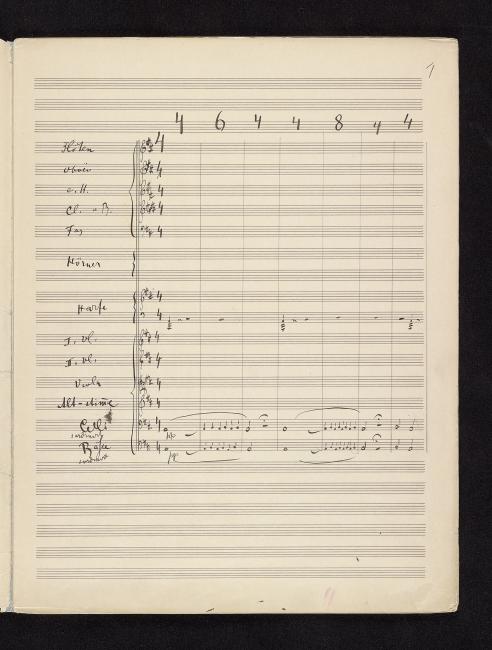 1
4 6 4 4 8 4 4
Flöten 4
Oboen 4
e. H. 4
Cl. in B. 4
Fag 4
Hörner
Harfe 4
4
I. Vl. 4
II. Vl. 4
Viola 4
Alt-stimme 4
Celli
pp
Bässe
pp